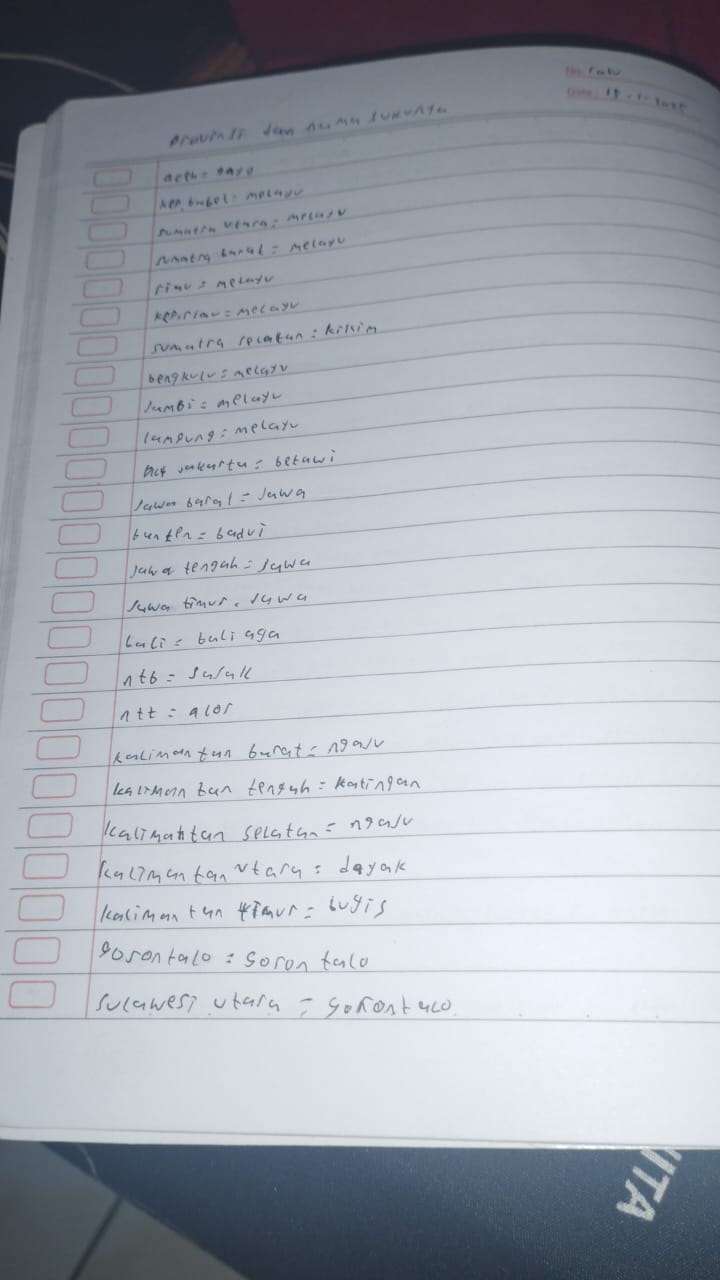 No. rabu
Date. 15-1-2025
Provinsi dan nama sukunya
aceh = gayo
kep. babel = melayu
sumatra utara = melayu
sumatra barat = melayu
riau = melayu
kep.riau = melayu
sumatra selatan = kikim
bengkulu = melayu
Jambi = melayu
lampung = melayu
jakarta = betawi
Jawa barat = Jawa
banten = badui
Jawa tengah = Jawa
Jawa timur = Jawa
bali = bali aga
ntb = sasak
ntt = alor
kalimantan barat = ngaju
kalimantan tengah = katingan
kalimantan selatan = ngaju
kalimantan utara = dayak
kalimantan timur = bugis
gorontalo = gorontalo
sulawesi utara = gorontalo
VITA